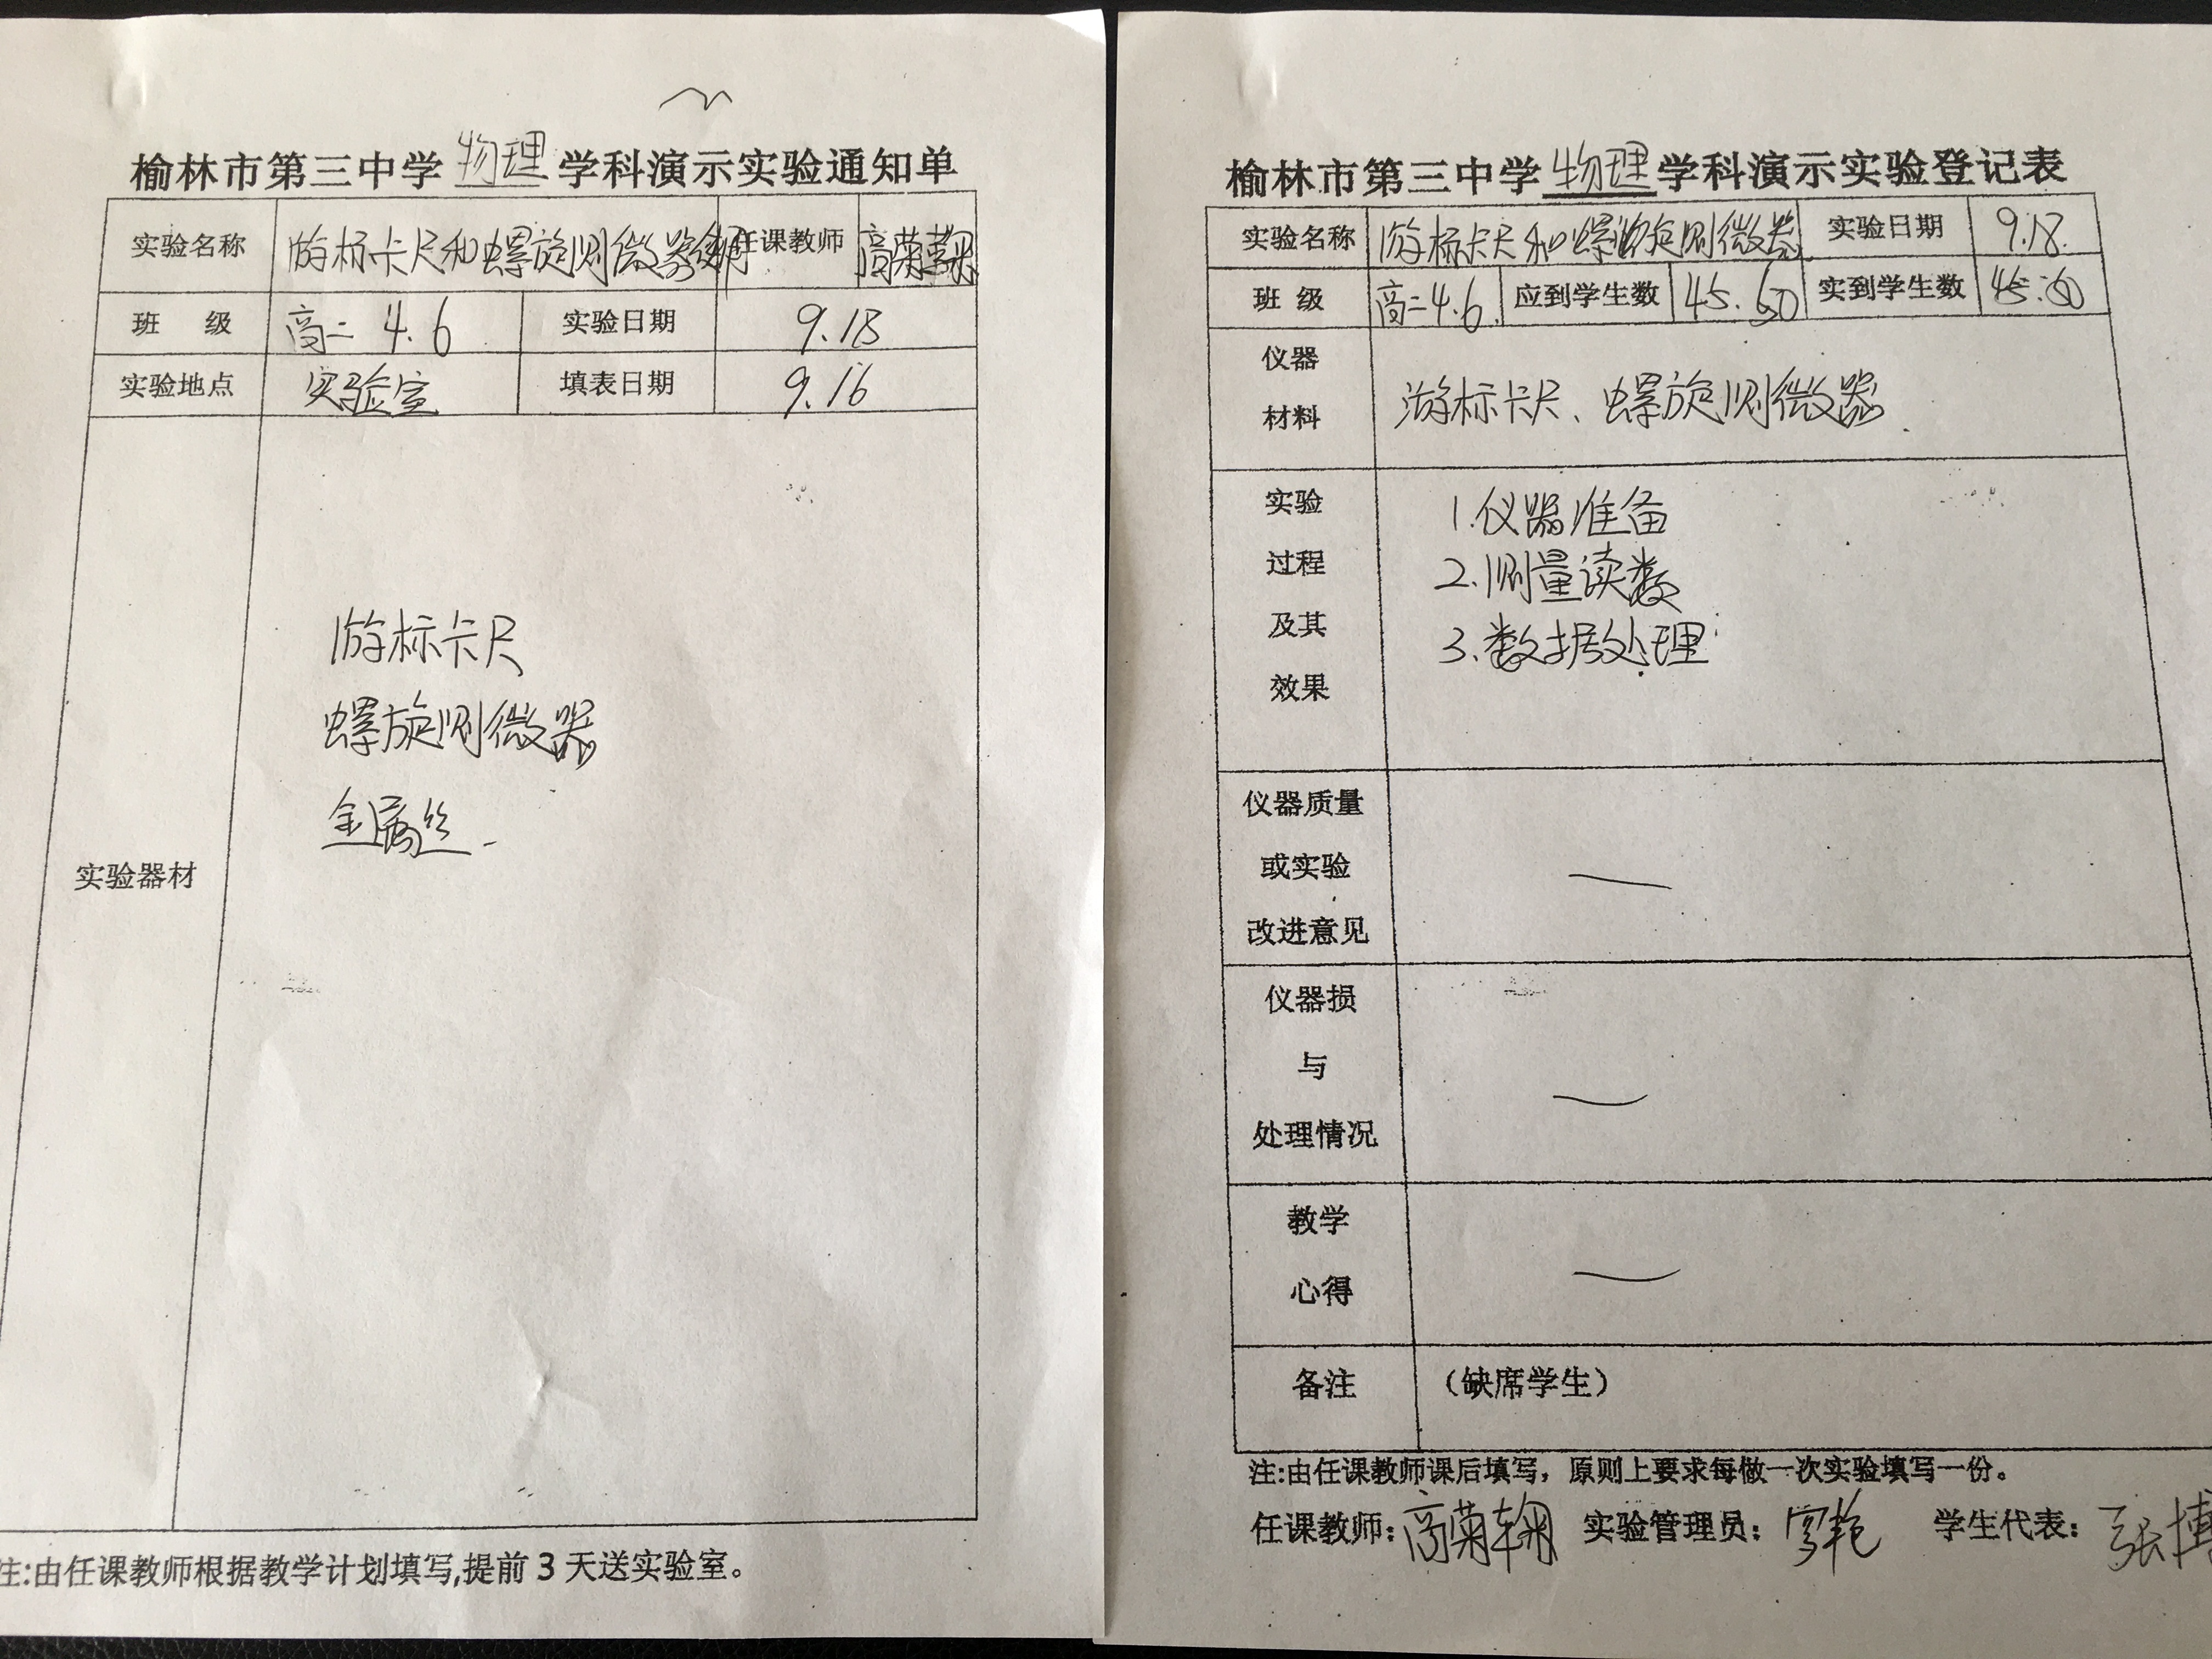 榆林市第三中学 物理 学科演示实验通知单
实验名称 游标卡尺和螺旋测微器 任课教师 高菊鞠
班 级 高二 4.6 实验日期 9.18
实验地点 实验室 填表日期 9.16
实验器材
游标卡尺
螺旋测微器
金属丝
注:由任课教师根据教学计划填写,提前3天送实验室。
榆林市第三中学 物理 学科演示实验登记表
实验名称 游标卡尺和螺旋测微器 实验日期 9.18.
班 级 高二 4.6. 应到学生数 45.60 实到学生数 45.60
仪器
材料
游标卡尺、螺旋测微器.
实验
过程
及其
效果
1.仪器准备
2.测量读数
3.数据处理
仪器质量
或实验
改进意见
—
仪器损
与
处理情况
—
教学
心得
—
备注 （缺席学生）
注:由任课教师课后填写，原则上要求每做一次实验填写一份。
任课教师: 高菊鞠 实验管理员: 学生代表: 张博